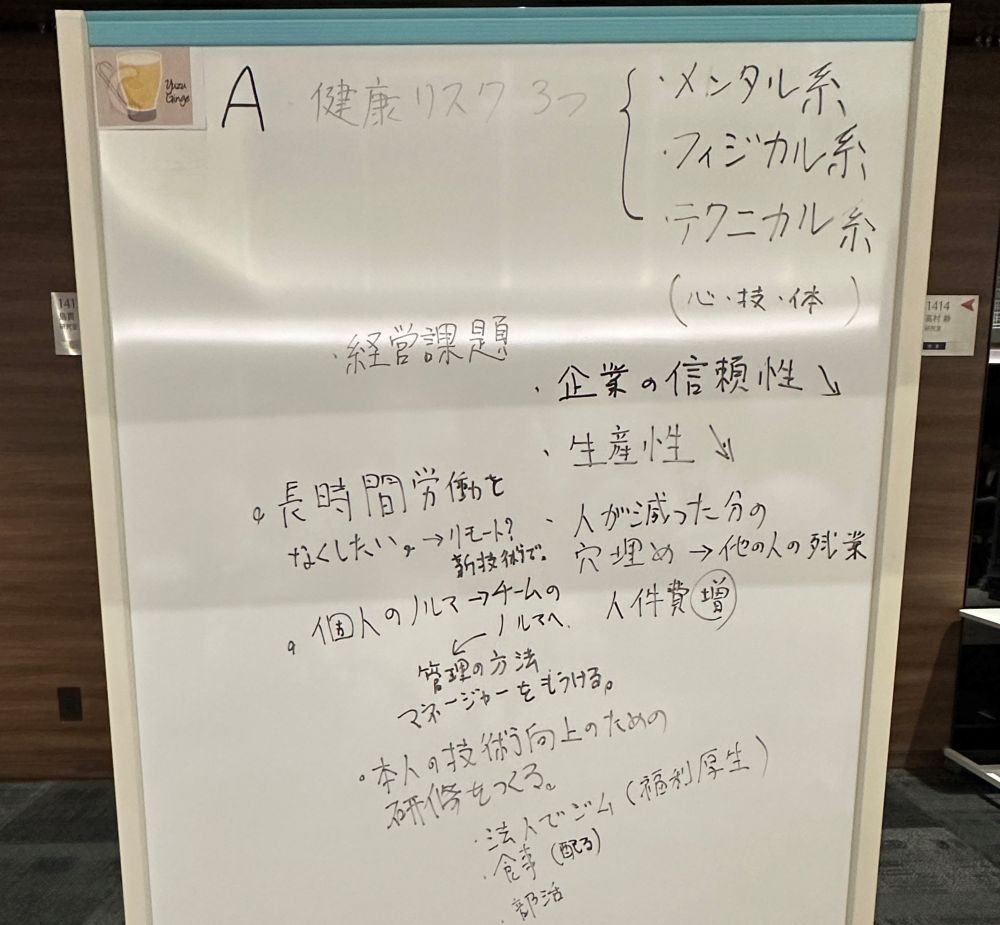 Yuzu
Ginger
A
・健康リスク 3つ
・メンタル系
・フィジカル系
・テクニカル系
(心・技・体)
・経営課題
・企業の信頼性↘
・生産性↘
・人が減った分の
穴埋め→他の人の残業
人件費 増
。長時間労働を
なくしたい。→リモート?
新技術で。
。個人のノルマ→チームの
ノルマへ.
管理の方法
マネージャーをもうける。
。本人の技術向上のための
研修をつくる。
・法人でジム(福利厚生)
・食事(配る)
・部活
141
研究室
1414
高村 静
研究室